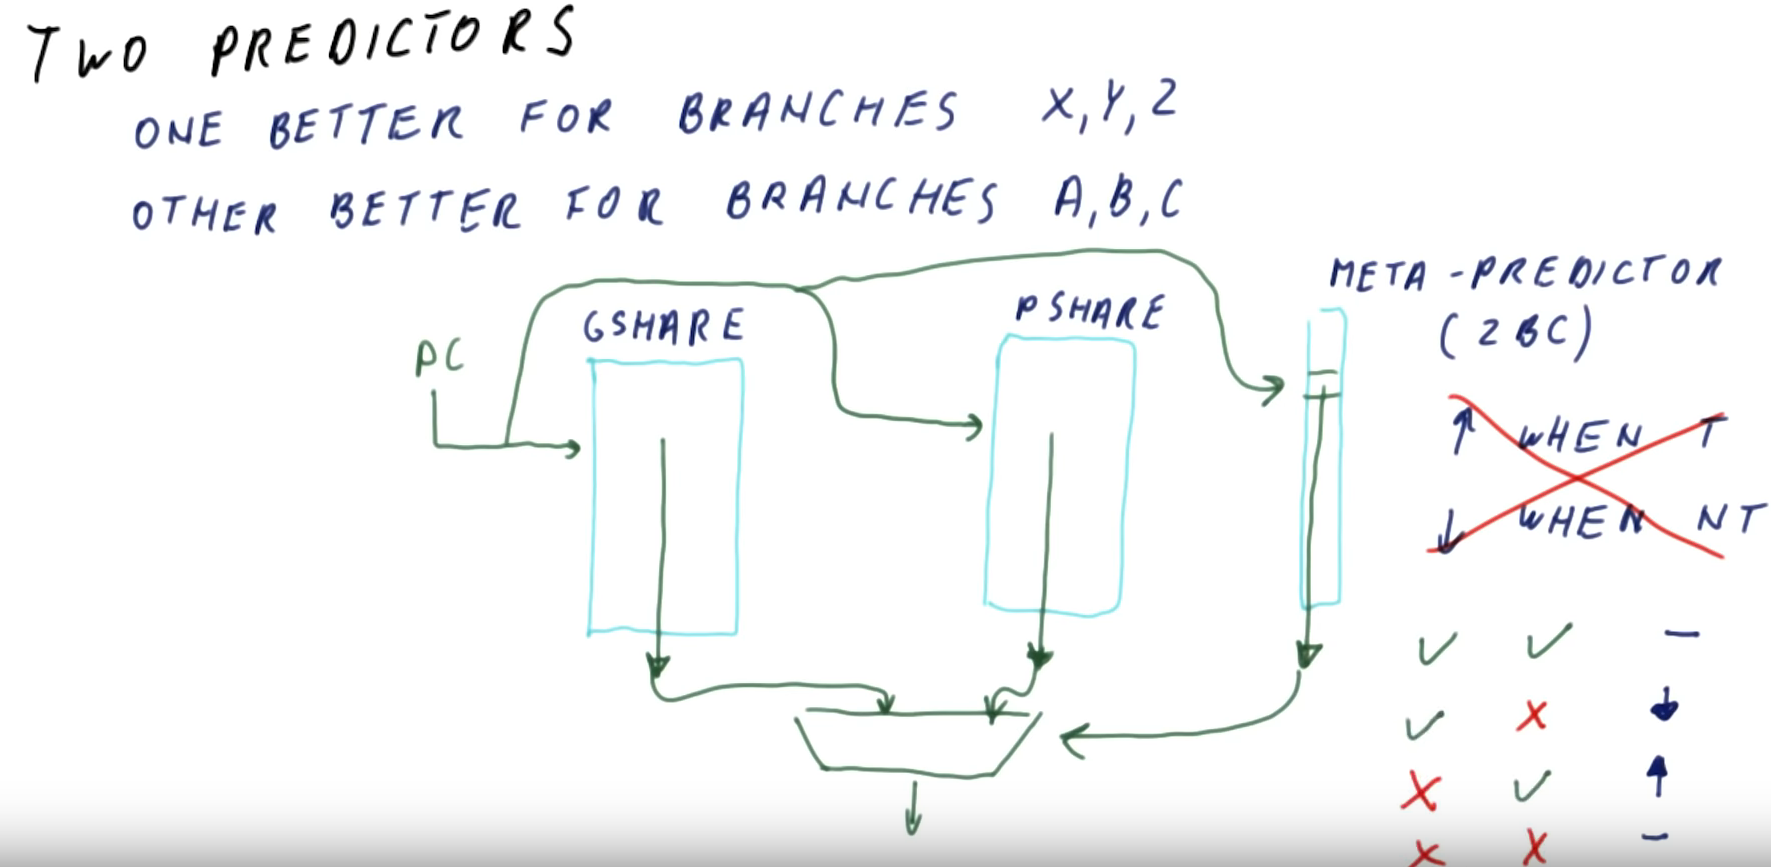 TWO PREDICTORS
ONE BETTER FOR BRANCHES X,Y,Z
OTHER BETTER FOR BRANCHES A,B,C
PC
GSHARE
PSHARE
META-PREDICTOR
(2BC)
↑ WHEN T
↓ WHEN NT
✓ ✓ –
✓ X ↓
X ✓ ↑
X X –